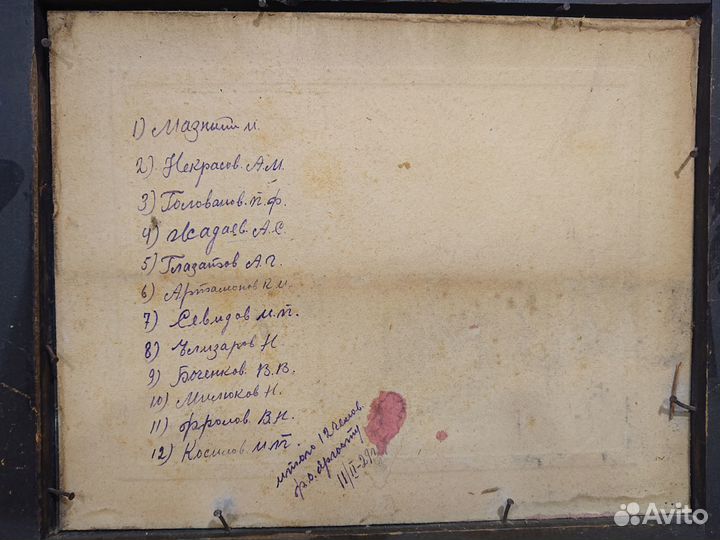 1) Мазнит М.
2) Некрасов. А.М.
3) Голованов. П. Ф.
4) Жадаев. А.С.
5) Глазатов А. Г.
6) Артамонов К. И.
7) Севидов И.П.
8) Елизаров Н.
9) Боченков. В. В.
10) Милюков Н.
11) Фролов. В.Н.
12) Косилов И.П.
итого 12 челов.
11/II-29г
Avito